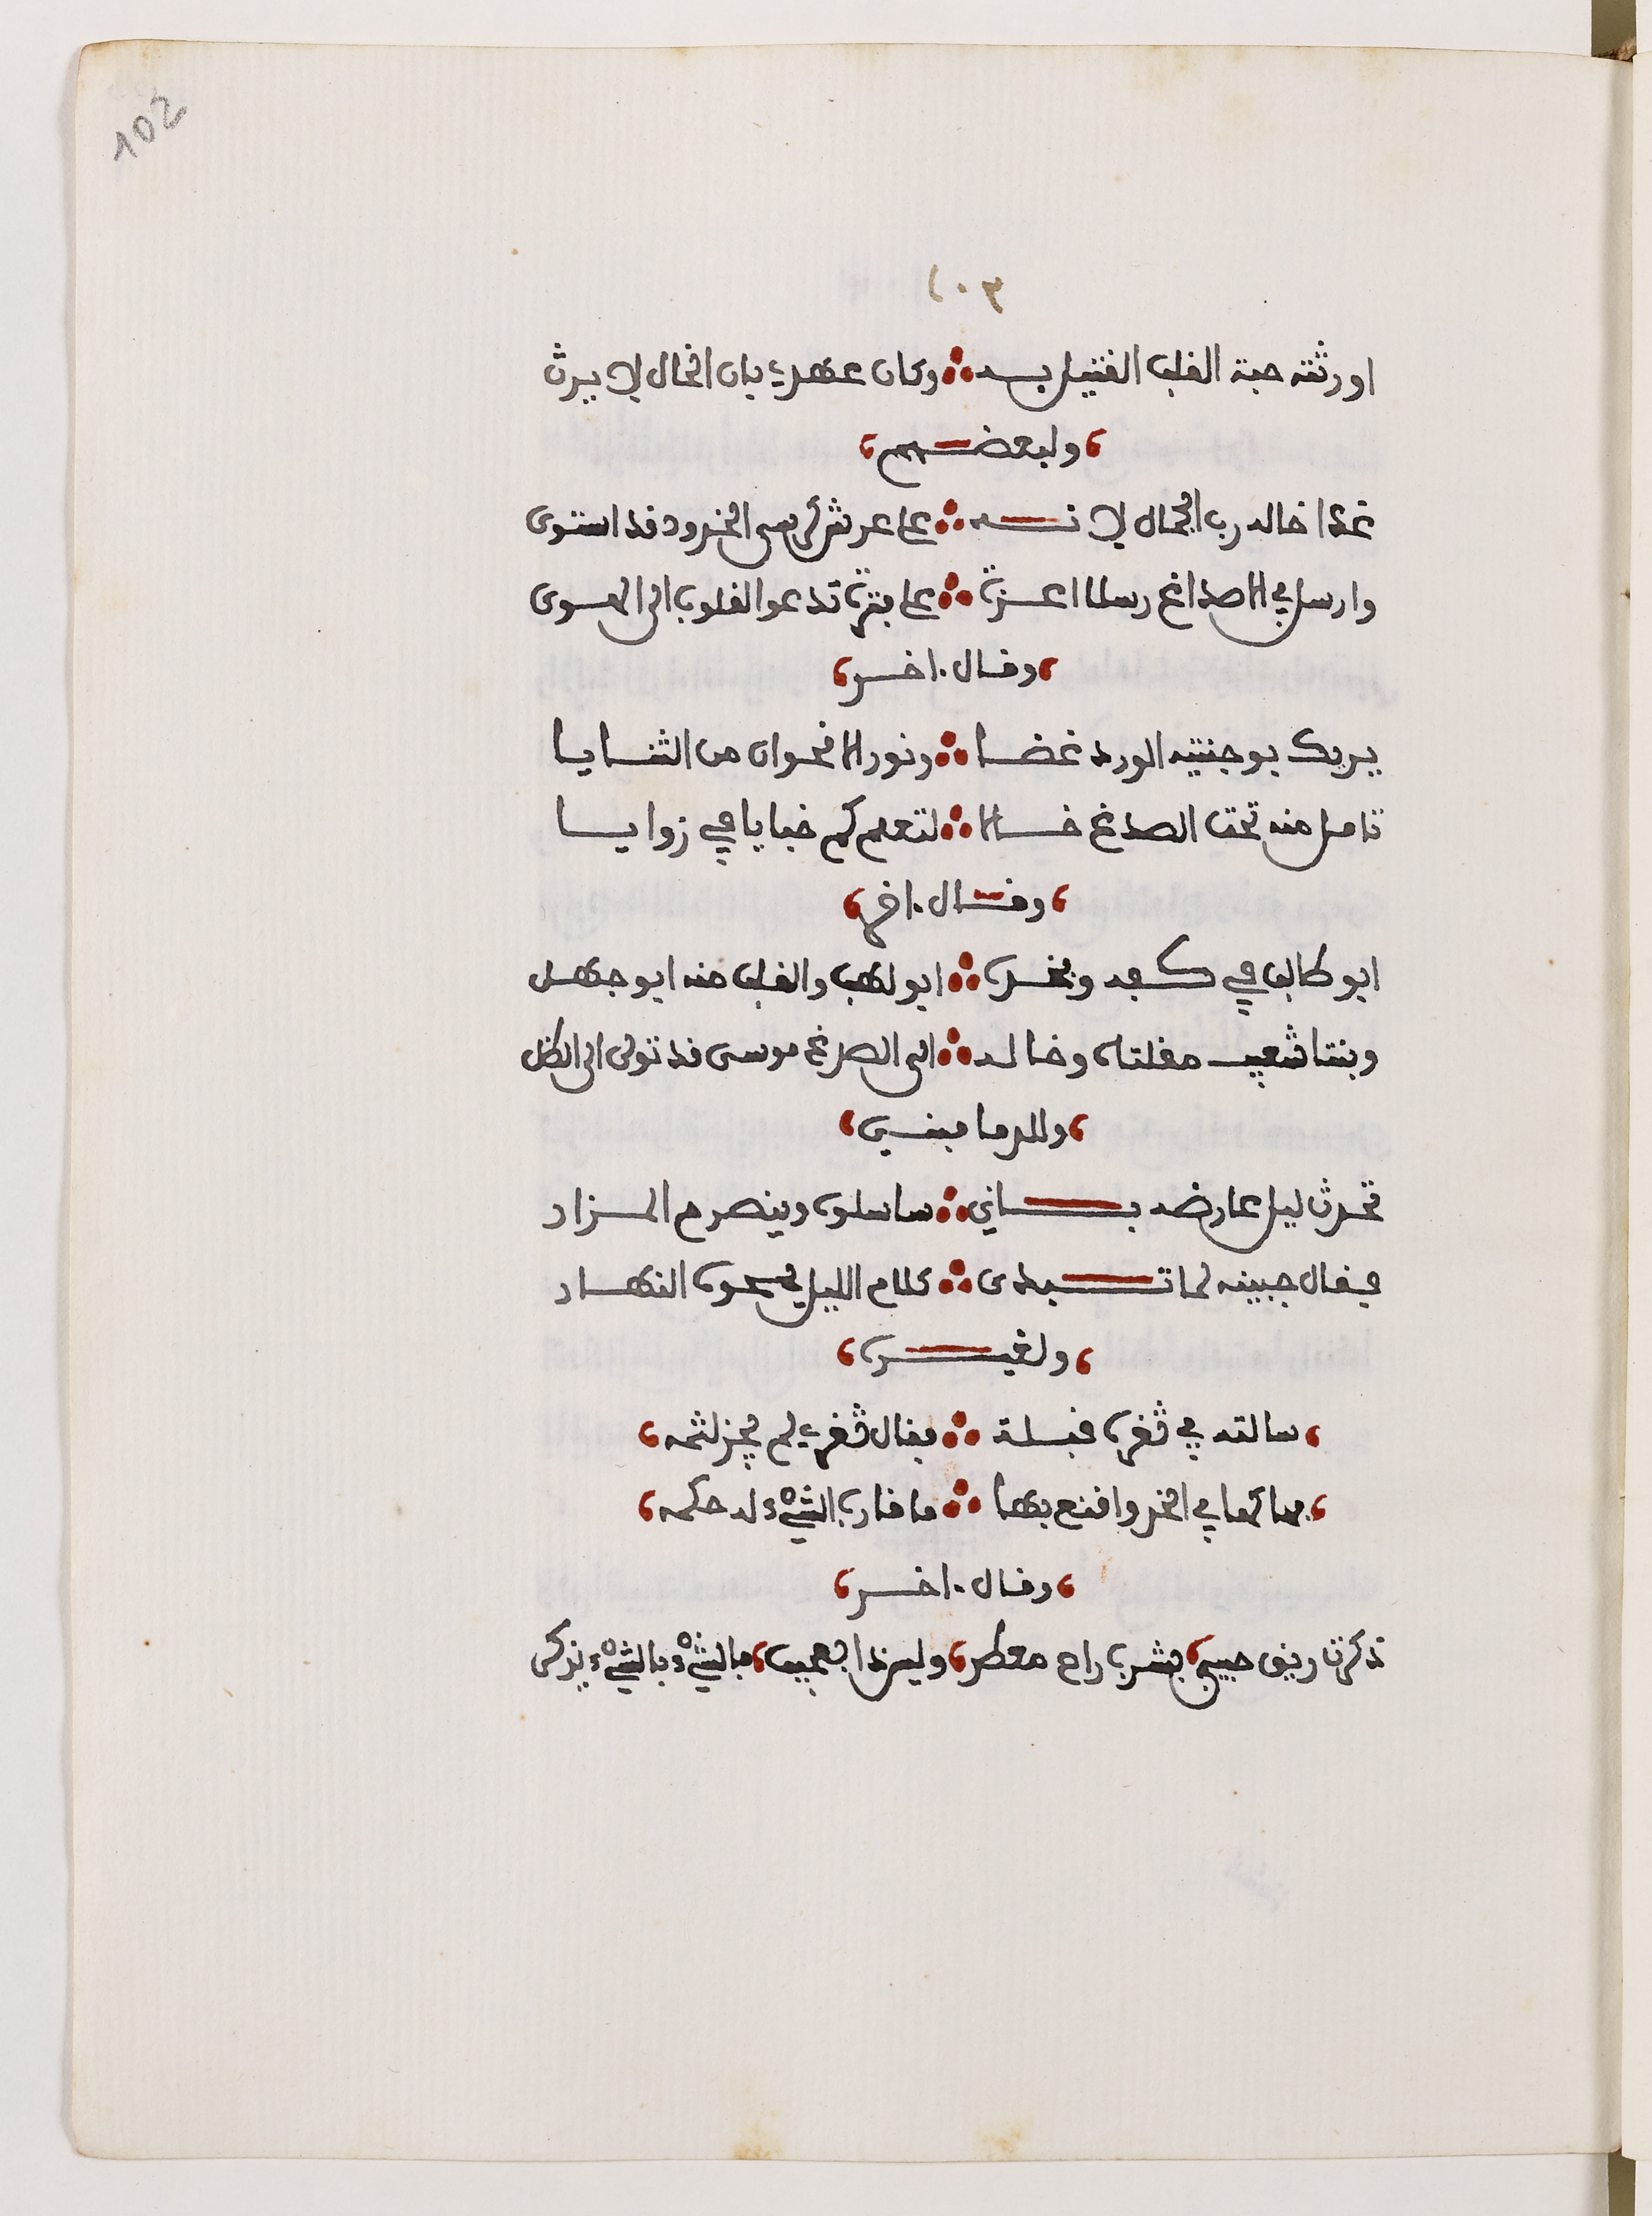 102
١٠٣
اورثته حبة القلب القتيل به ∴ وكان عهدي بان الخال لا يرث
، ولبعضهم ،
غدا خاله رب الجمال لانه ∴ على عرش كرسي الخدود قد استوى
وارسل بالاصداغ رسلا اعزة ∴ على فترة تدعوا القلوب الى الهوى
، وقال اخر ،
يريك بوجنتيه الورد غضا ∴ ونور الاقحوان من الثنايا
تامل منه تحت الصدغ خالا ∴ لتعلم كم خبايا في زوايا
، وقال اخر ،
ابو طالب في كفه وبخده ∴ ابو لهب والقلب منه ابو جهل
وبنتا شعيب مقلتاه وخاله ∴ الى الصدغ موسى قد تولى الى الظل
، وللدماميني ،
تحدث ليل عارضه باني ∴ ساسلوه وينصرم المزار
فقال جبينه لما تبدى ∴ كلام الليل يمحوه النهار
، ولغيره ،
، سالته في ثغره قبلة ∴ فقال ثغري لم يجز لثمه ،
، فهاكها في الخد واقنع بها ∴ ما قارب الشيء له حكمه ،
، وقال اخر ،
تذكرت ريق حبيبي، بشرب راح معطر، وليس ذا بعجيب، فالشيء بالشيء يذكر